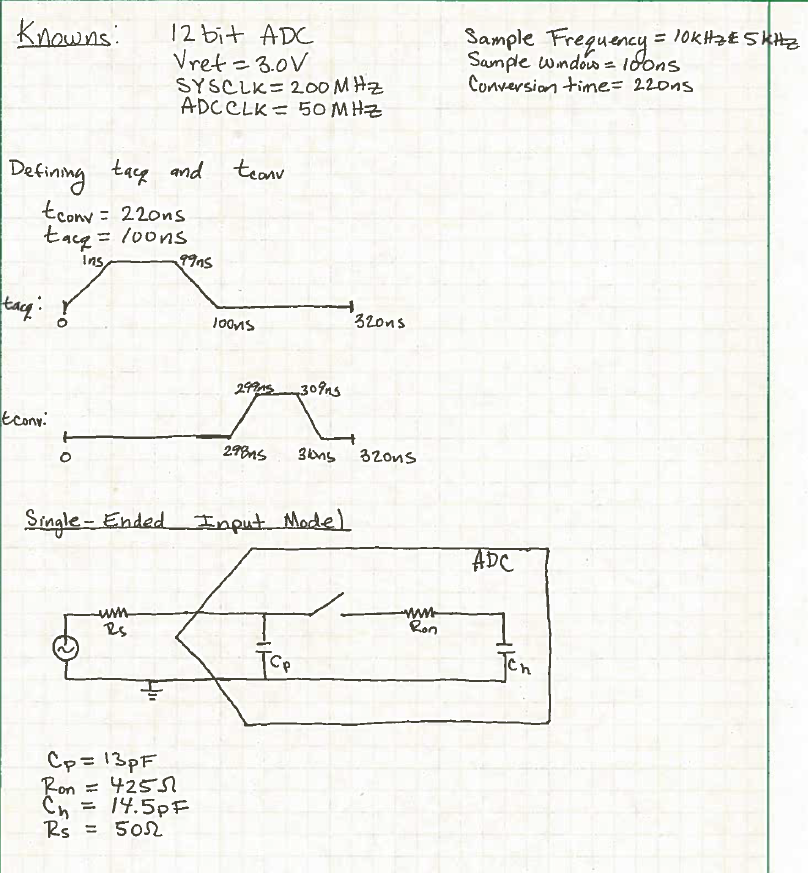 Knowns:
12 bit ADC
Vref = 3.0V
SYSCLK = 200MHz
ADCCLK = 50MHz
Sample Frequency = 10kHz & 5kHz
Sample Window = 100ns
Conversion time = 220ns
Defining tacq and tconv
tconv = 220ns
tacq = 100ns
1ns 99ns
tacq:
0 100ns 320ns
299ns 309ns
tconv:
0 298ns 310ns 320ns
Single-Ended Input Model
ADC
Rs Ron
Cp Ch
Cp = 13pF
Ron = 425Ω
Ch = 14.5pF
Rs = 50Ω